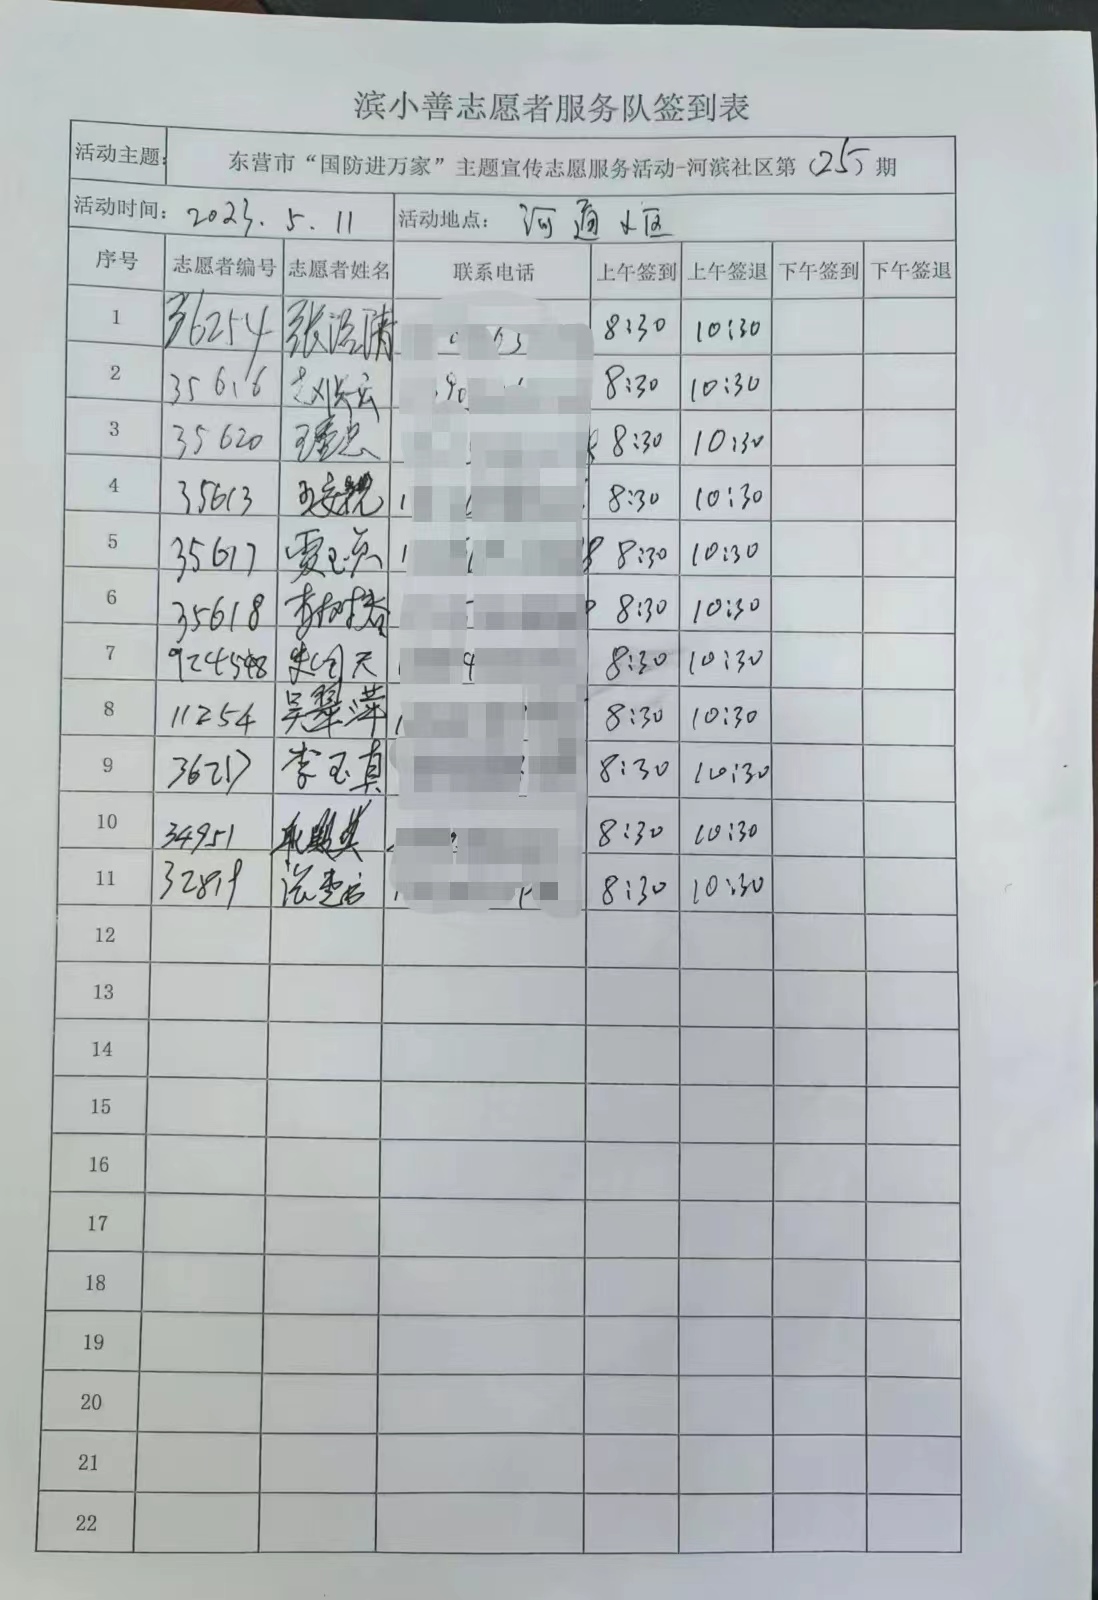 滨小善志愿者服务队签到表
活动主题: 东营市“国防进万家”主题宣传志愿服务活动-河滨社区第（25）期
活动时间: 2023.5.11 活动地点: 河通小区
序号 志愿者编号 志愿者姓名 联系电话 上午签到 上午签退 下午签到 下午签退
1 36254 8:30 10:30
2 35616 8:30 10:30
3 35620 8:30 10:30
4 35613 8:30 10:30
5 35617 贾玉英 8:30 10:30
6 35618 8:30 10:30
7 8:30 10:30
8 11254 吴翠萍 8:30 10:30
9 36217 李玉真 8:30 10:30
10 34951 8:30 10:30
11 32819 8:30 10:30
12
13
14
15
16
17
18
19
20
21
22